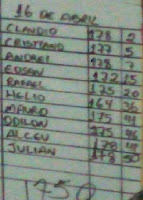 16 DE ABRIL
CLAUDIO 178 2
CRISTIANO 177 5
ANDREI 178 7
EDSON 172 15
RAFAEL 175 20
HELIO 164 36
MAURO 175
ODILON 175
ALCEU 178
JULIAN 178 50
1750